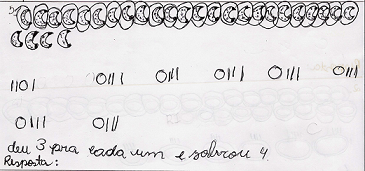 deu 3 pra cada um e sobrou 4.
Resposta: